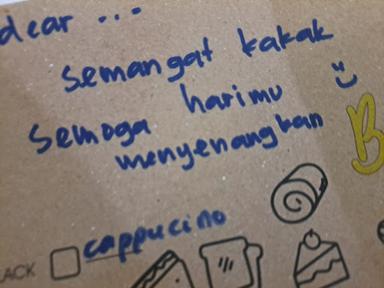 dear ...
Semangat kakak
Semoga harimu
menyenangkan
B
LACK cappucino